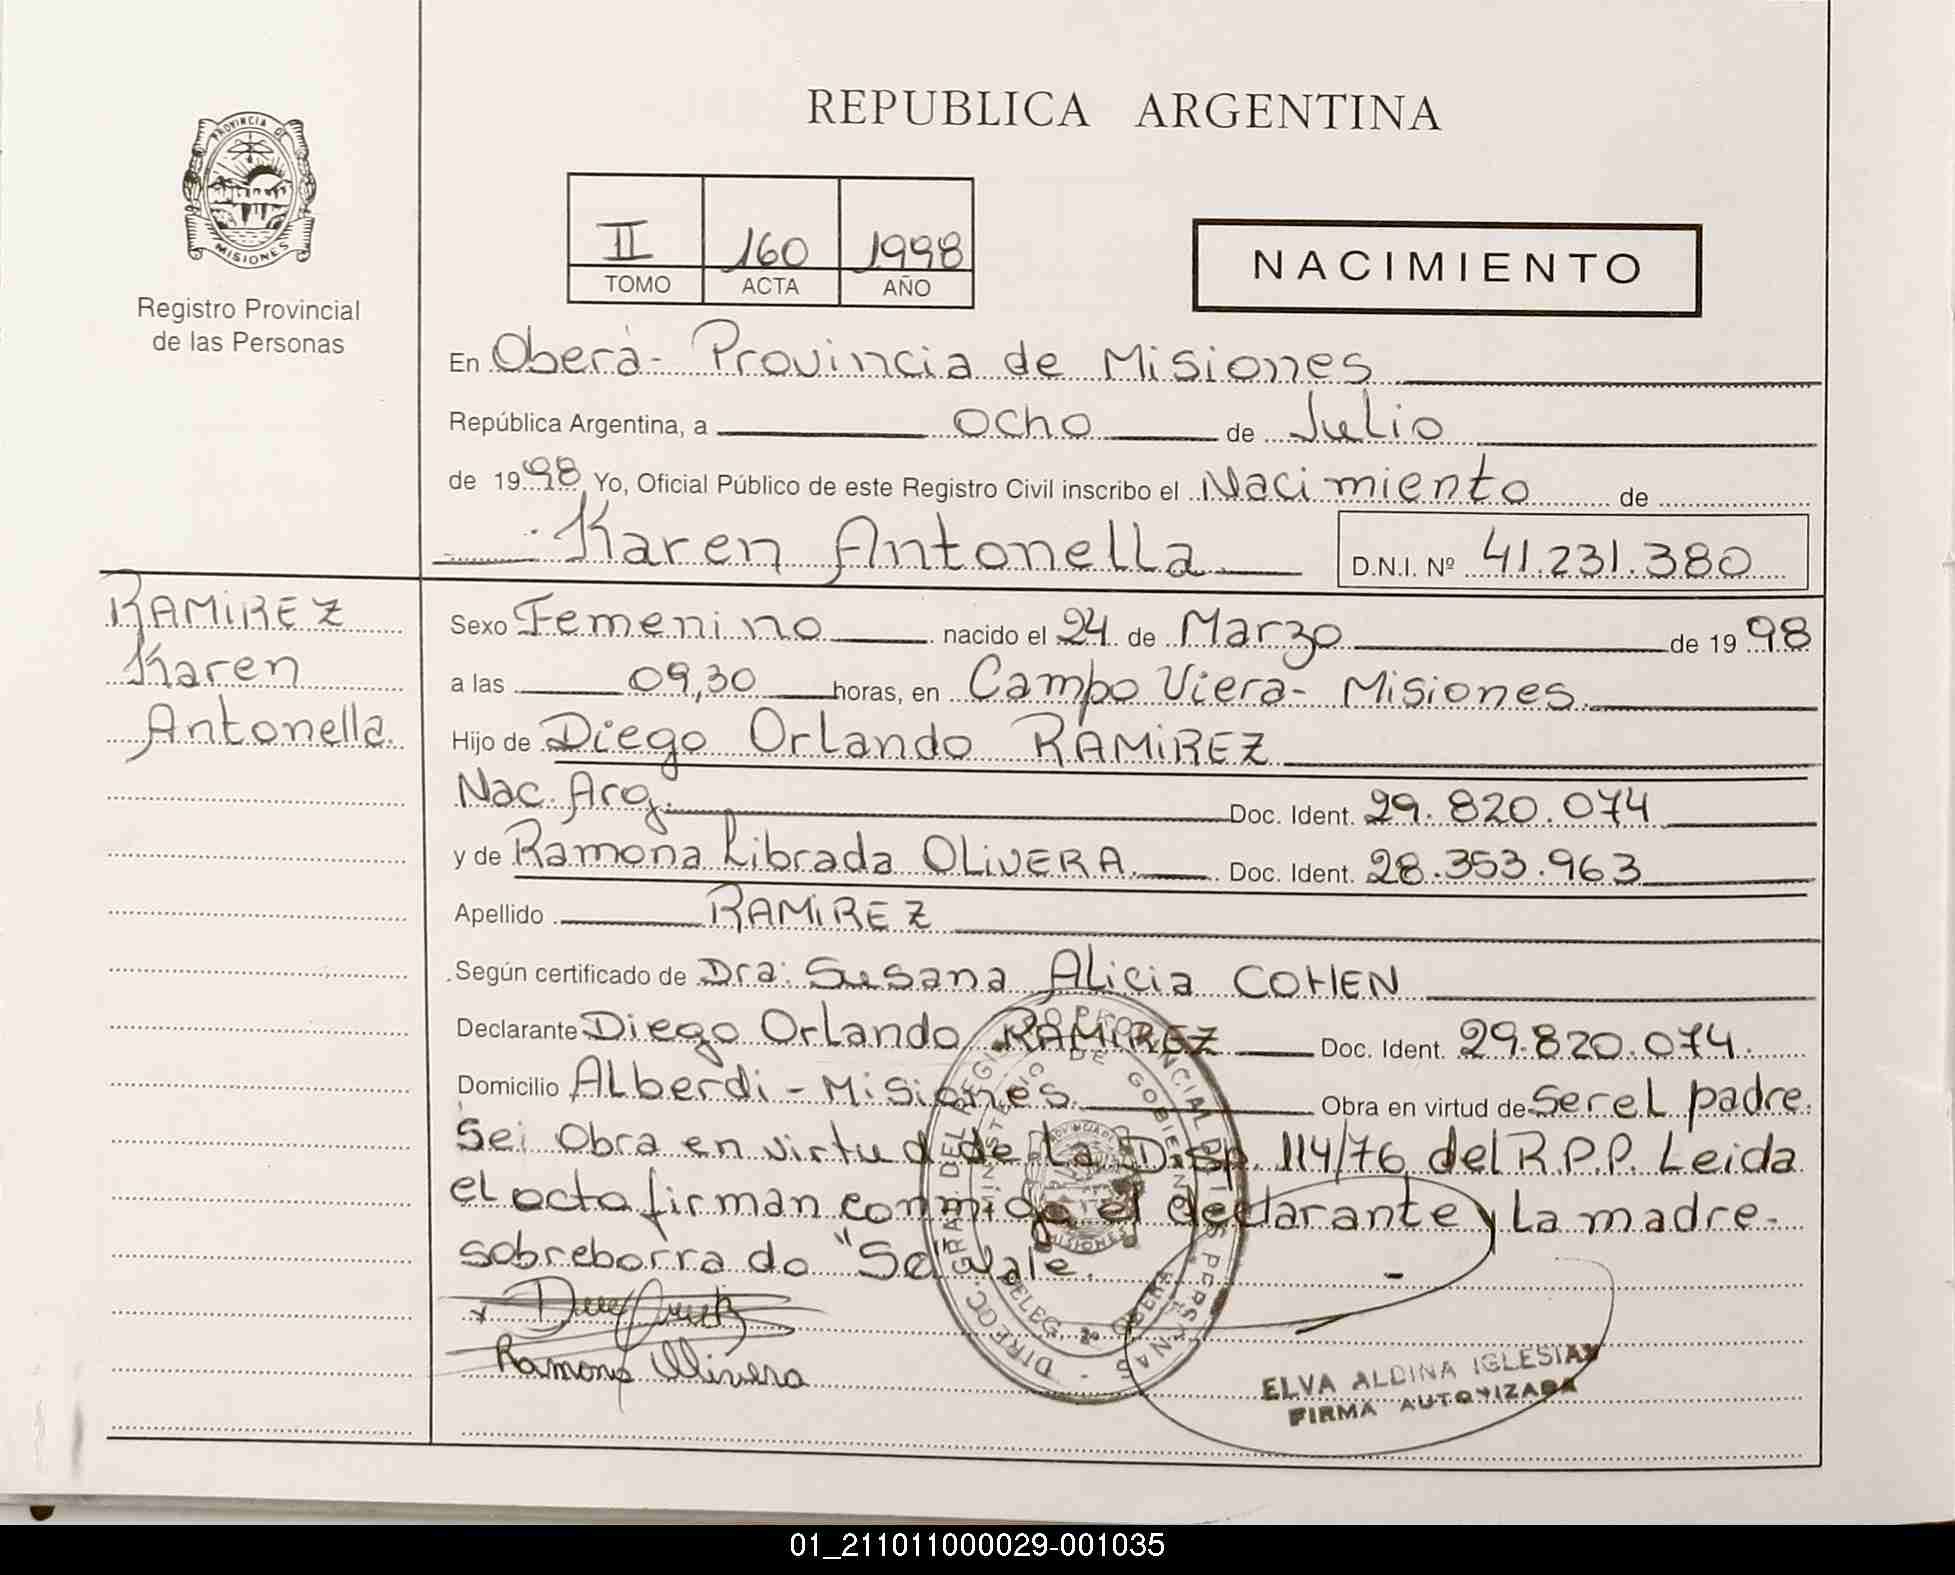 REPUBLICA ARGENTINA
PROVINCIA DE
MISIONES
Registro Provincial
de las Personas
II 160 1998
TOMO ACTA AÑO
NACIMIENTO
En Oberá - Provincia de Misiones
República Argentina, a ocho de Julio
de 1998 Yo, Oficial Público de este Registro Civil inscribo el Nacimiento de
Karen Antonella D.N.I. Nº 41.231.380
RAMIREZ
Karen
Antonella
Sexo Femenino nacido el 24 de Marzo de 1998
a las 09,30 horas, en Campo Viera - Misiones
Hijo de Diego Orlando RAMIREZ
Nac. Arg. Doc. Ident. 29.820.074
y de Ramona Librada OLIVERA Doc. Ident. 28.353.963
Apellido RAMIREZ
Según certificado de Dra: Susana Alicia COHEN
Declarante Diego Orlando RAMIREZ Doc. Ident. 29.820.074.
Domicilio Alberdi - Misiones Obra en virtud de Ser el padre.
Se: Obra en virtud de la Disp. 114/76 del R.P.P. Leida
el acta firman conmigo el declarante y La madre-
sobreborrado "Se" Vale.
Ramona Olivera
DIREC. GRAL. DEL REGISTRO PROVINCIAL DE LAS PERSONAS
MINISTERIO DE GOBIERNO
DELEG. OBERA
MISIONES
ELVA ALDINA IGLESIAS
FIRMA AUTORIZADA
01_211011000029-001035